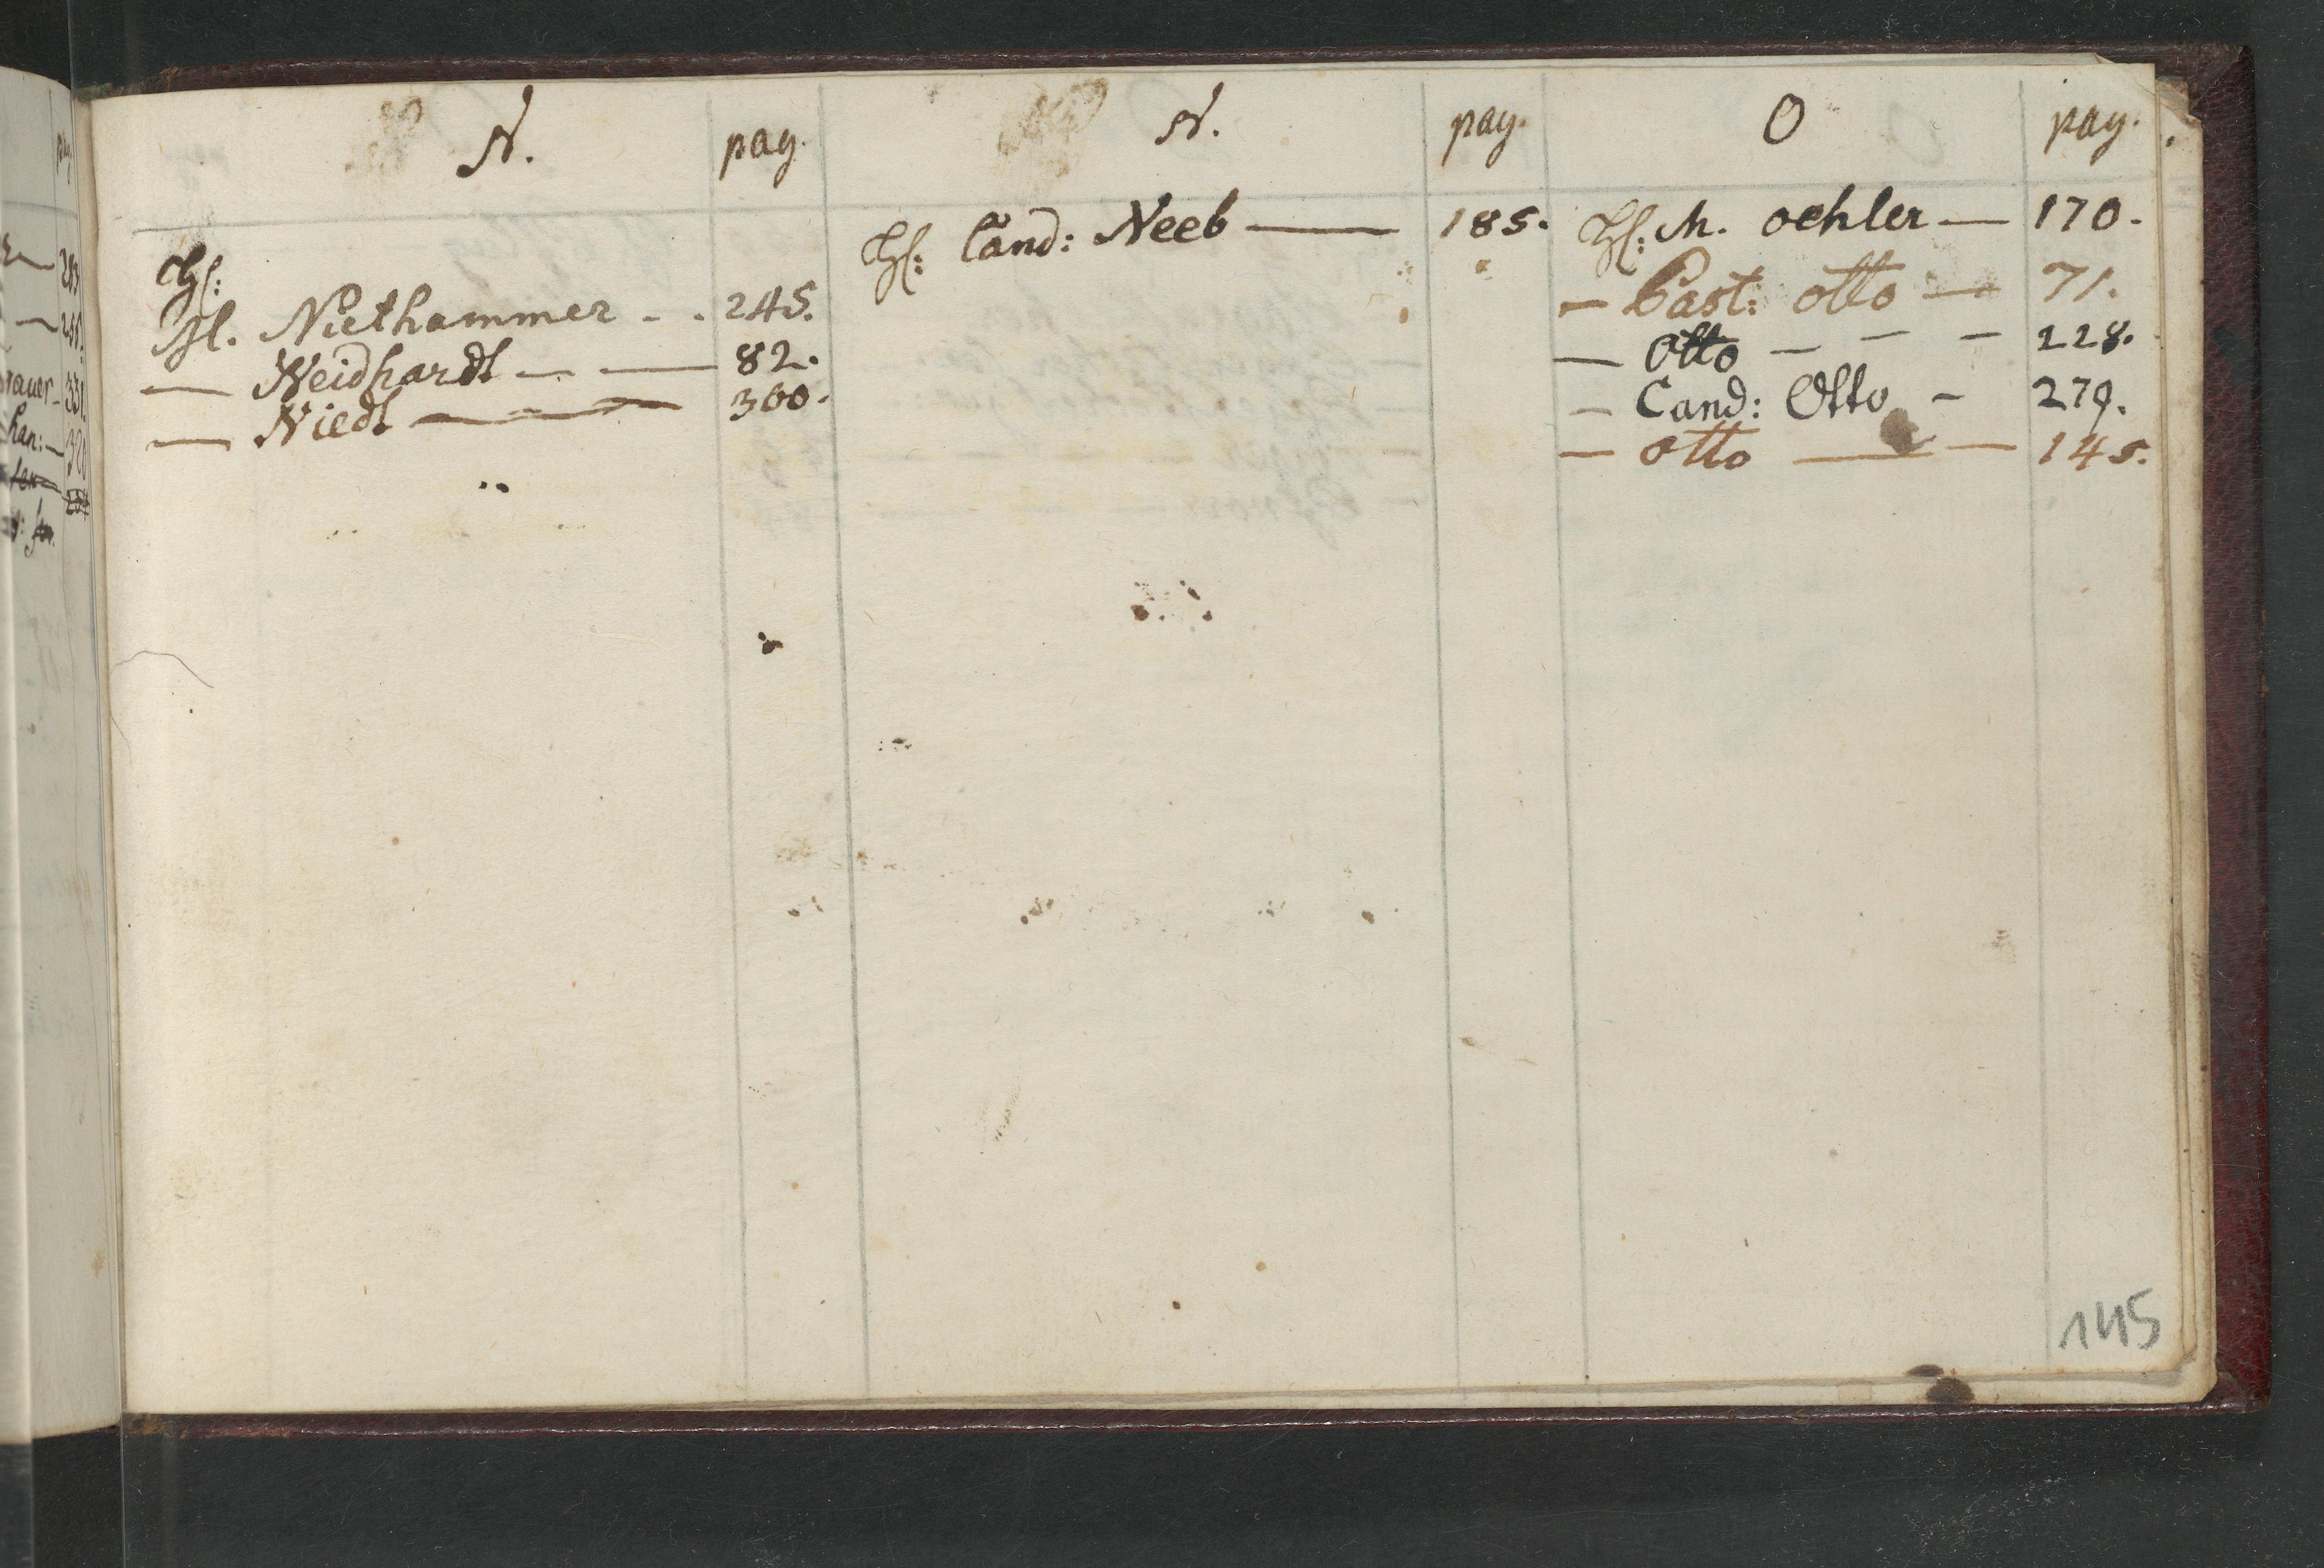 N.
pag.
Hl:
M. Niethammer - . 245.
— Neidhardt — — 82.
— Niedt — — — 300.
N.
pag.
Hl: Cand: Neeb — 185.
O
pag.
Hl: M. Oehler — 170.
— Past: Otto — 71.
— Otto — — — 228.
— Cand: Otto - 279.
— Otto — — 145.
145
rauer - 331.
han: — 320